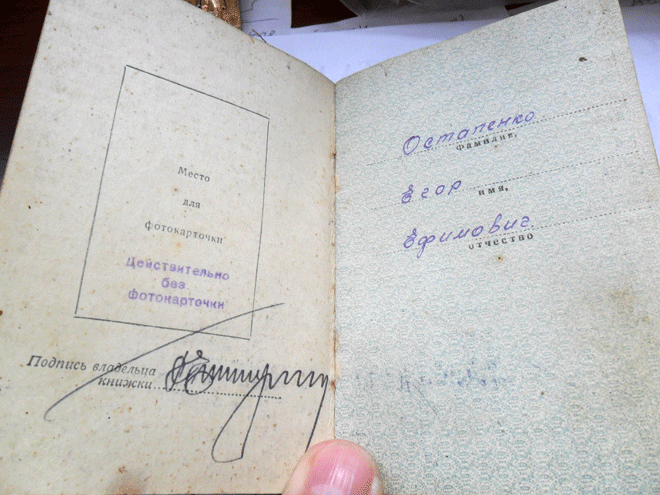 Место
для
фотокарточки
Действительно
без
фотокарточки
Подпись владельца
книжки
Остапенко
фамилия,
Егор
имя,
Ефимович
отчество